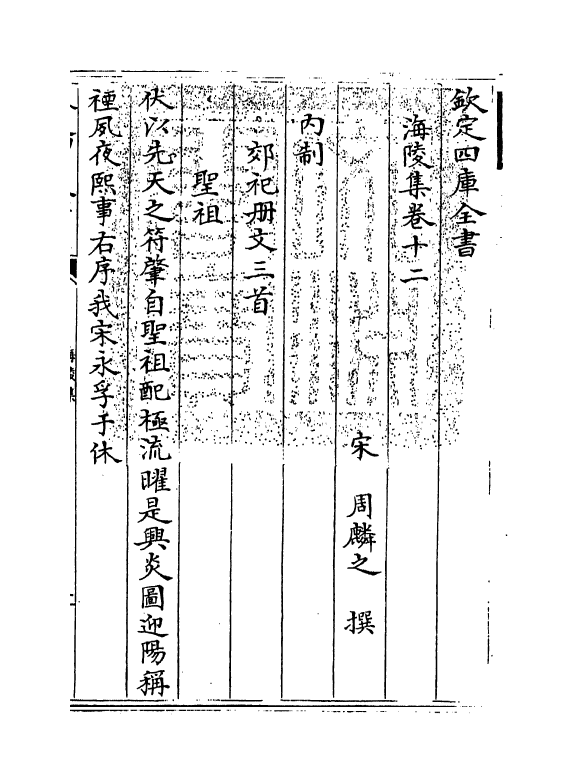 欽定四庫全書
海陵集卷十二
宋 周麟之 撰
內制
郊祀册文三首
聖祖
伏以先天之符肇自聖祖配極流曜是興炎圖迎陽稱
禋夙夜熙事右序我宋永孚于休
海陵集